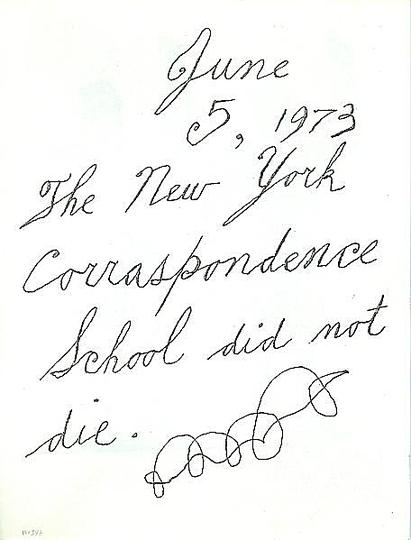 June
5, 1973
The New York
Corraspondence
School did not
die.